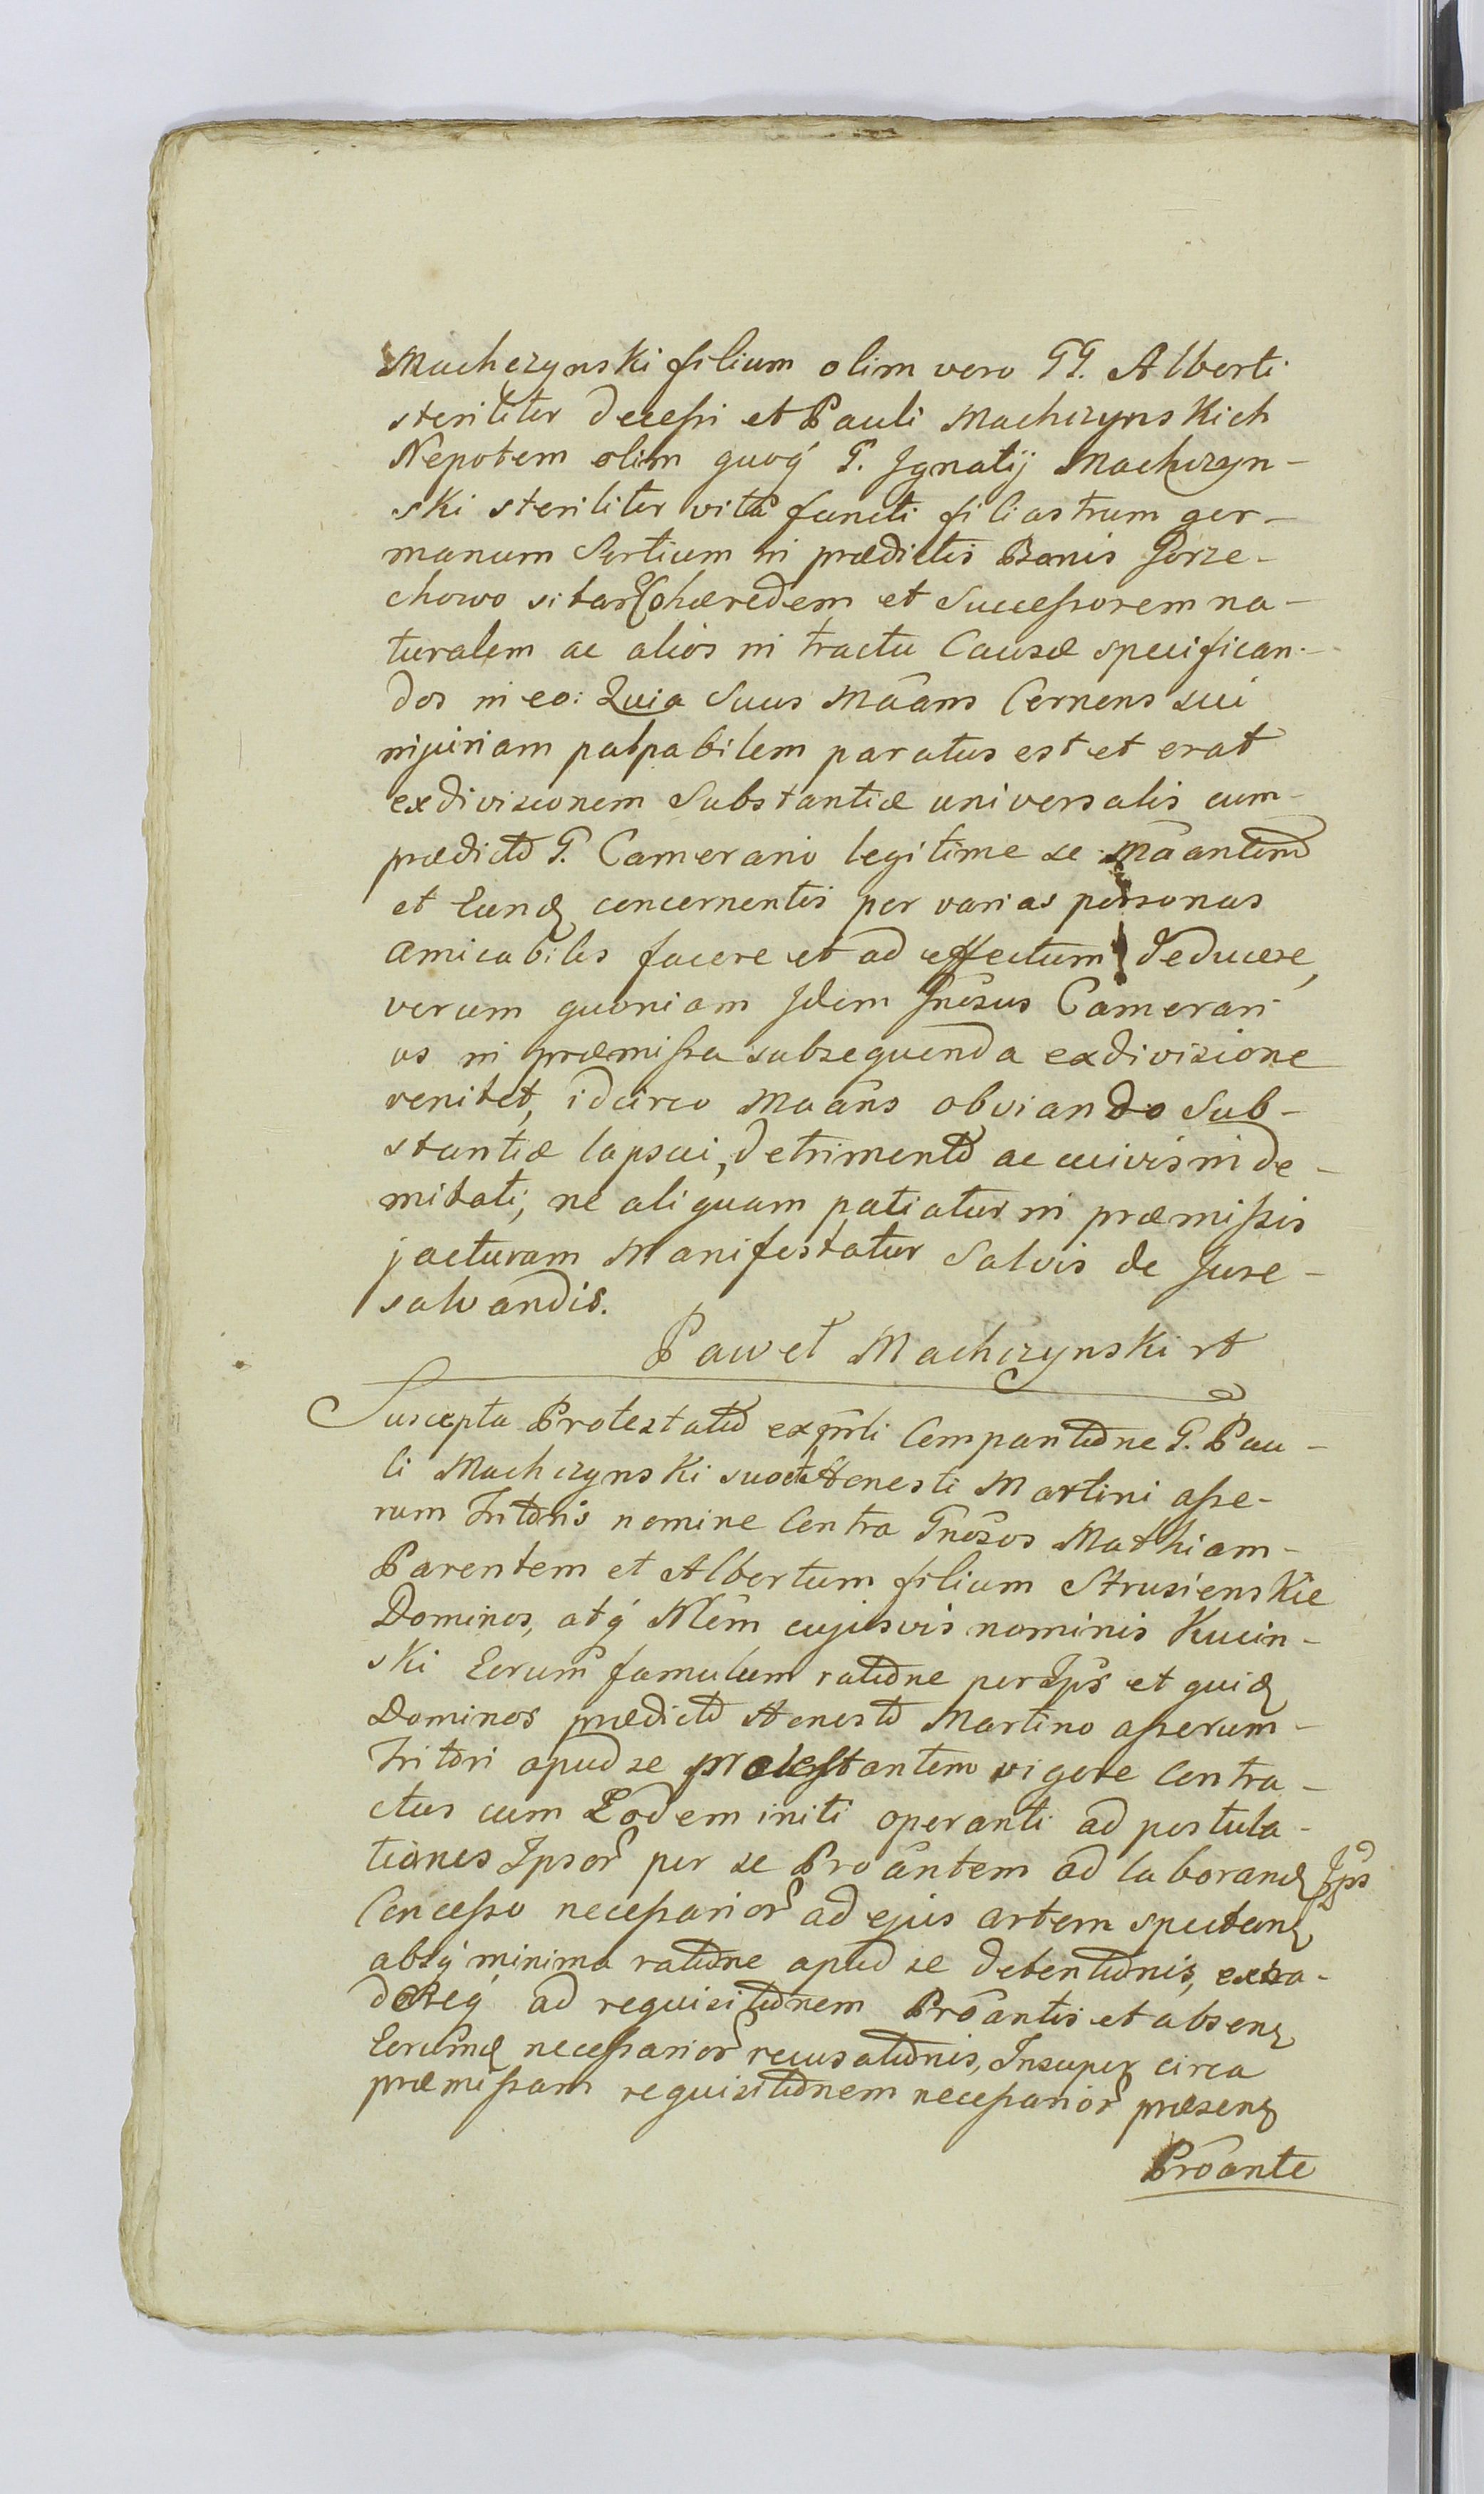 Machczynski filium olim vero GG. Alberti
steriliter decessi et Pauli Machczynskich
Nepotem olim quoq́ G. Jgnatij Machczyn-
ski steriliter vitâ functi filiastrum ger-
manum Sortium in prædictis Bonis Jorze-
chowo sitar Cohæredem et Successorem na-
turalem ac alios in tractu Causæ specifican-
dos in eo: Quia Suus Mãans Cernens sui
injuriam palpabilem paratus est et erat
exdivisionem Substantiæ universalis cum
prædicto G. Camerario legitime se Mãantem
et Eund concernentis per varias personas
amicabiles facere et ad effectum deducere,
verum quoniam Jdem Gnõsus Camerari
us in præmissa subsequenda exdivisione
renitet, idcirco Maãns obviando Sub-
stantiæ lapsui, detrimento ac cuivis inde-
mitati, ne aliquam patiatur in præmissis
jacturam Manifestatur Salvis de Jure
salvandis.
Paweł Machczynski
Suscepta Protestatio ex pñli Comparitione G. Pau-
li Machczynski suo et Honesti Martini asse-
rum Tritoris nomine Contra Gnõsos Mathiam
Parentem et Albertum filium Strusienskie
Dominos, atq́ Nlẽm cujusvis nominis Kucin-
ski Eorum famulum ratione per Jps et quid
Dominos prædicto Honesto Martino asserum
Tritori apud se protestantem vigore Contra-
ctus cum Eodem initi operanti ad postula-
tiones Ipsor per se Proãntem ad laborand Jps
Concesso necessarior ad ejus artem spectan
absq́ minima ratione apud se detentionis, extra-
dereq́ ad requisitionem Proãntis et absen
Eorumd necessarior recusationis, Insuper circa
præmissam requisitionem necessarior præsen
Proãnte